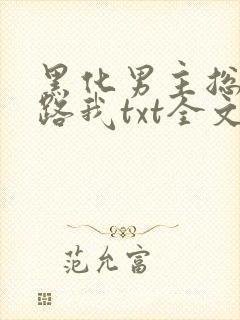 黑化男主总
路我txt全文
范允富